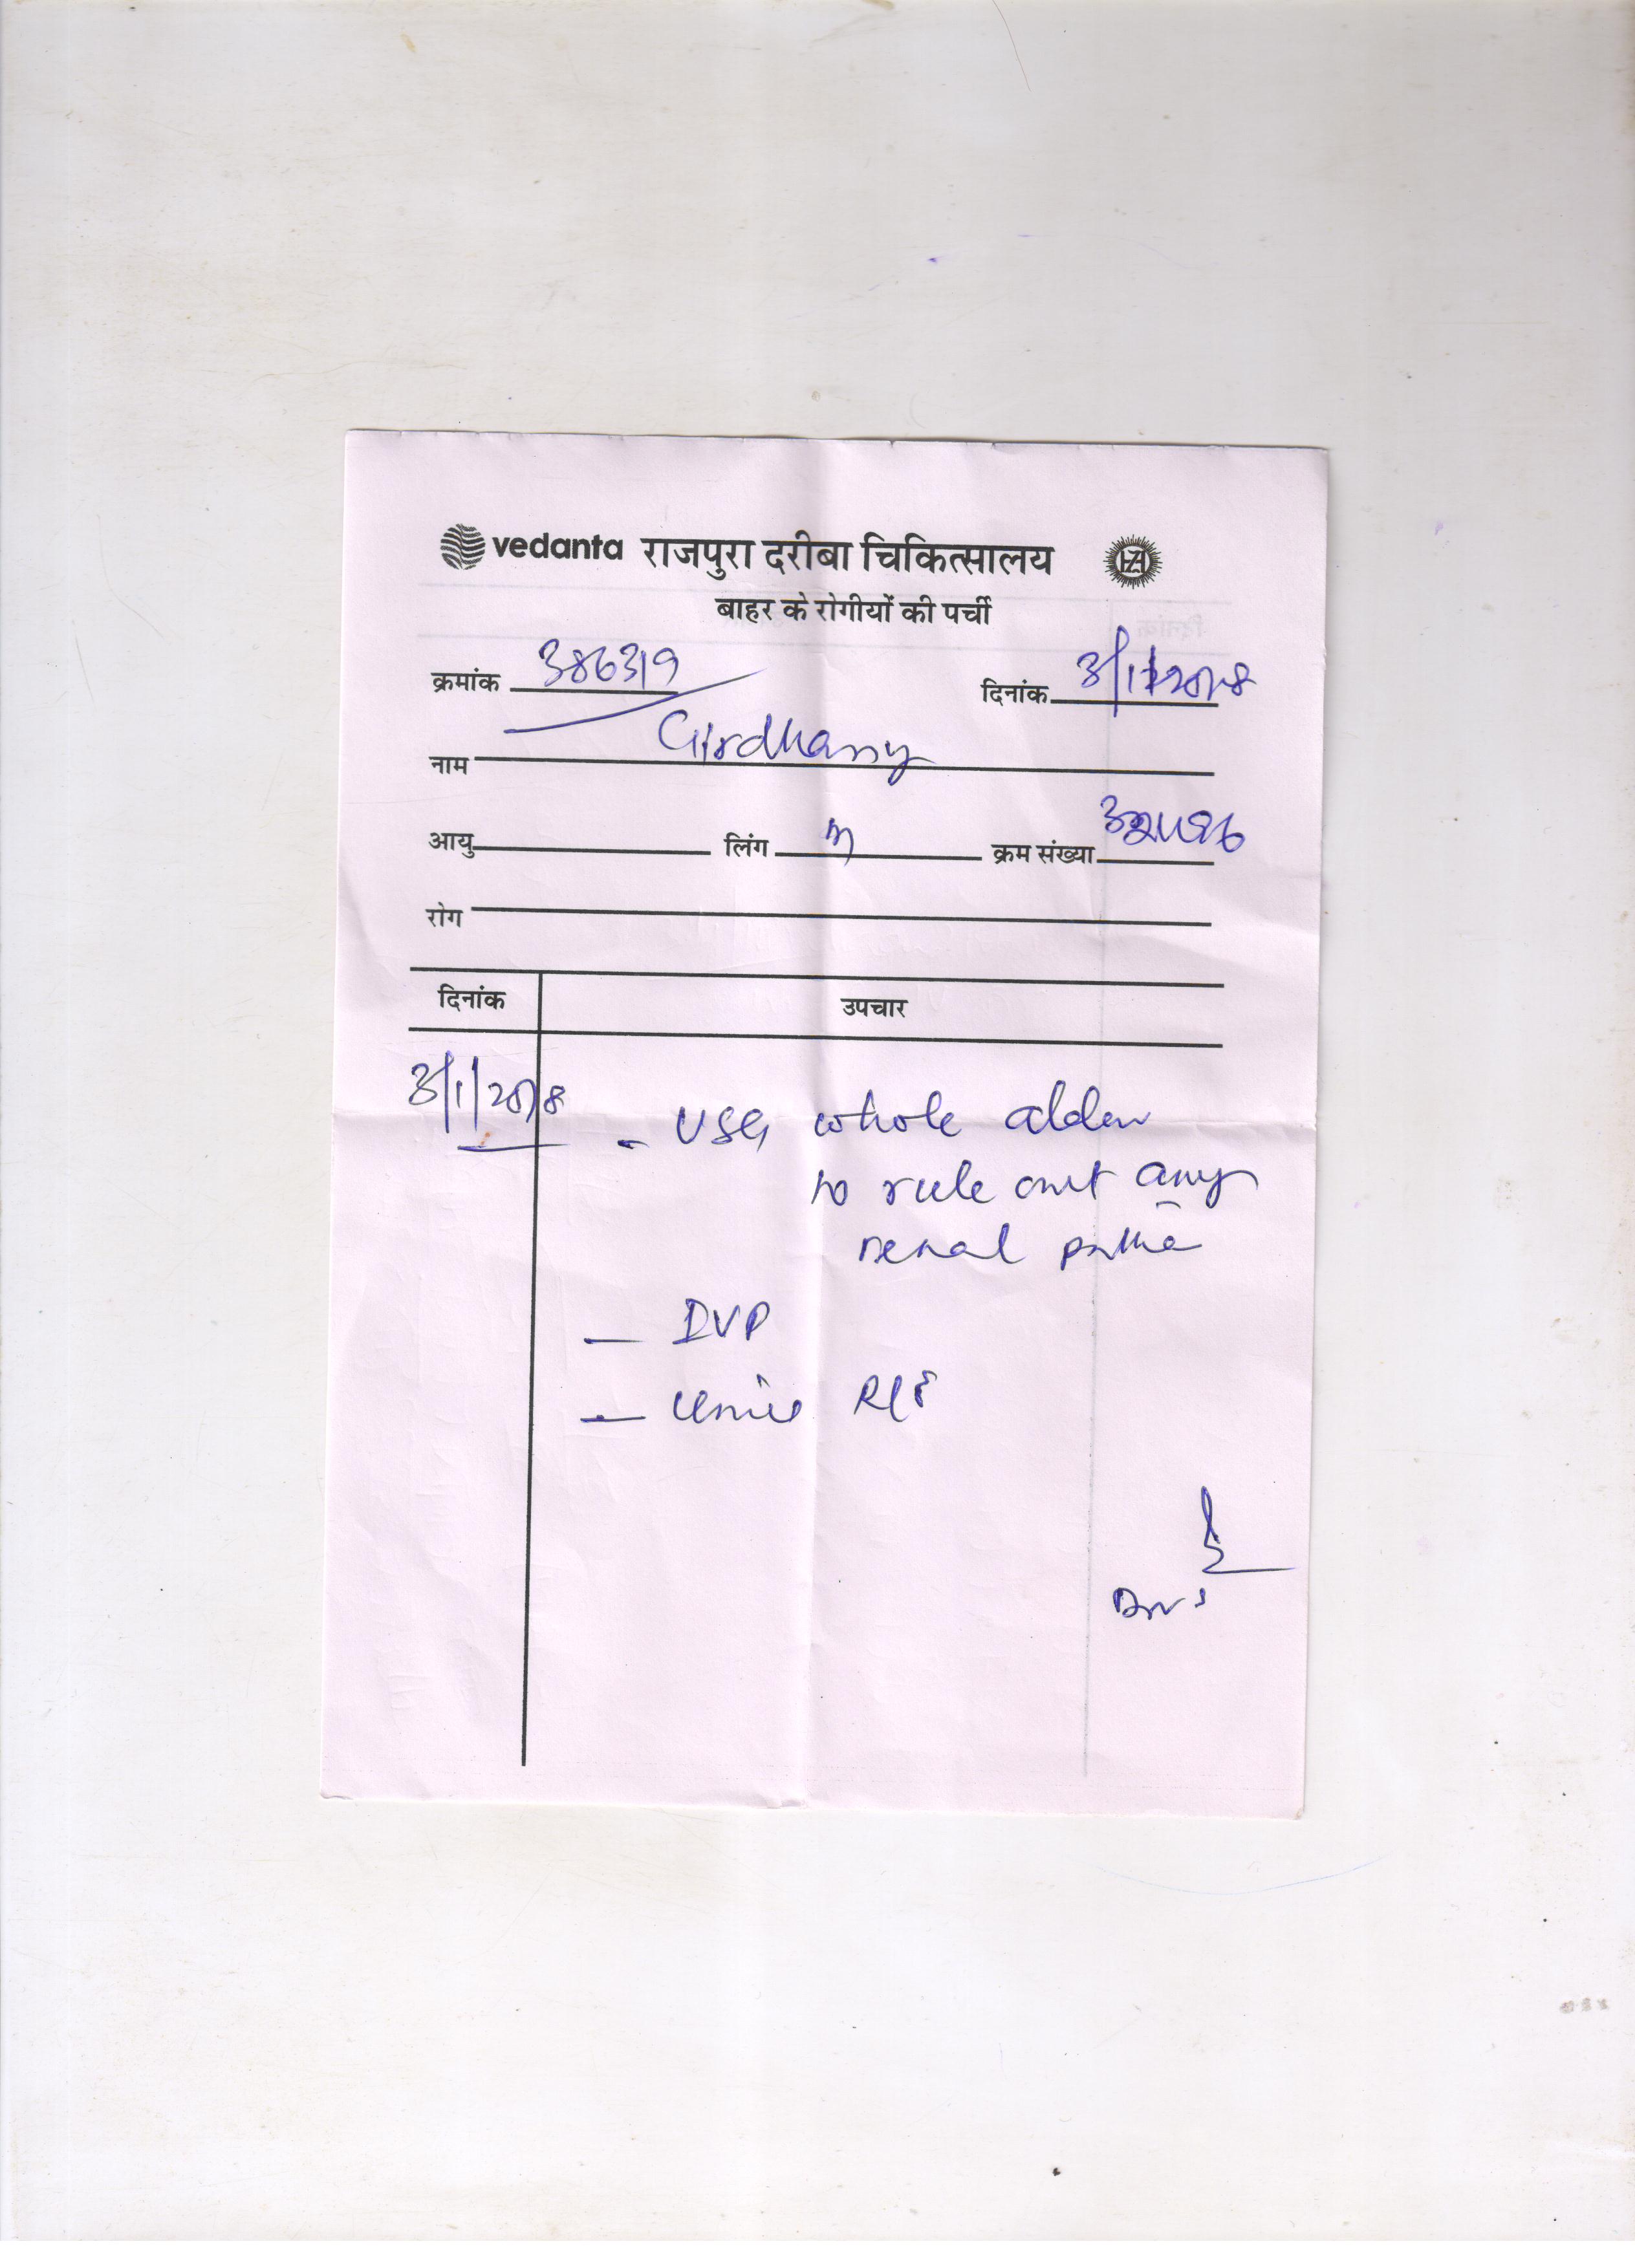 vedanta राजपुरा दरीबा चिकित्सालय HZL
बाहर के रोगीयों की पर्ची
क्रमांक 386319 दिनांक 3/1/2018
नाम Girdhary
आयु लिंग M क्रम संख्या
रोग
दिनांक उपचार
3/1/2018 - USG whole abdom
to rule out any
renal patho
- IVP
- Urine R/E